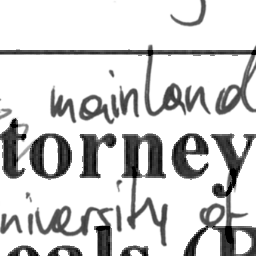 mainland
torney
niversity of
eals (P